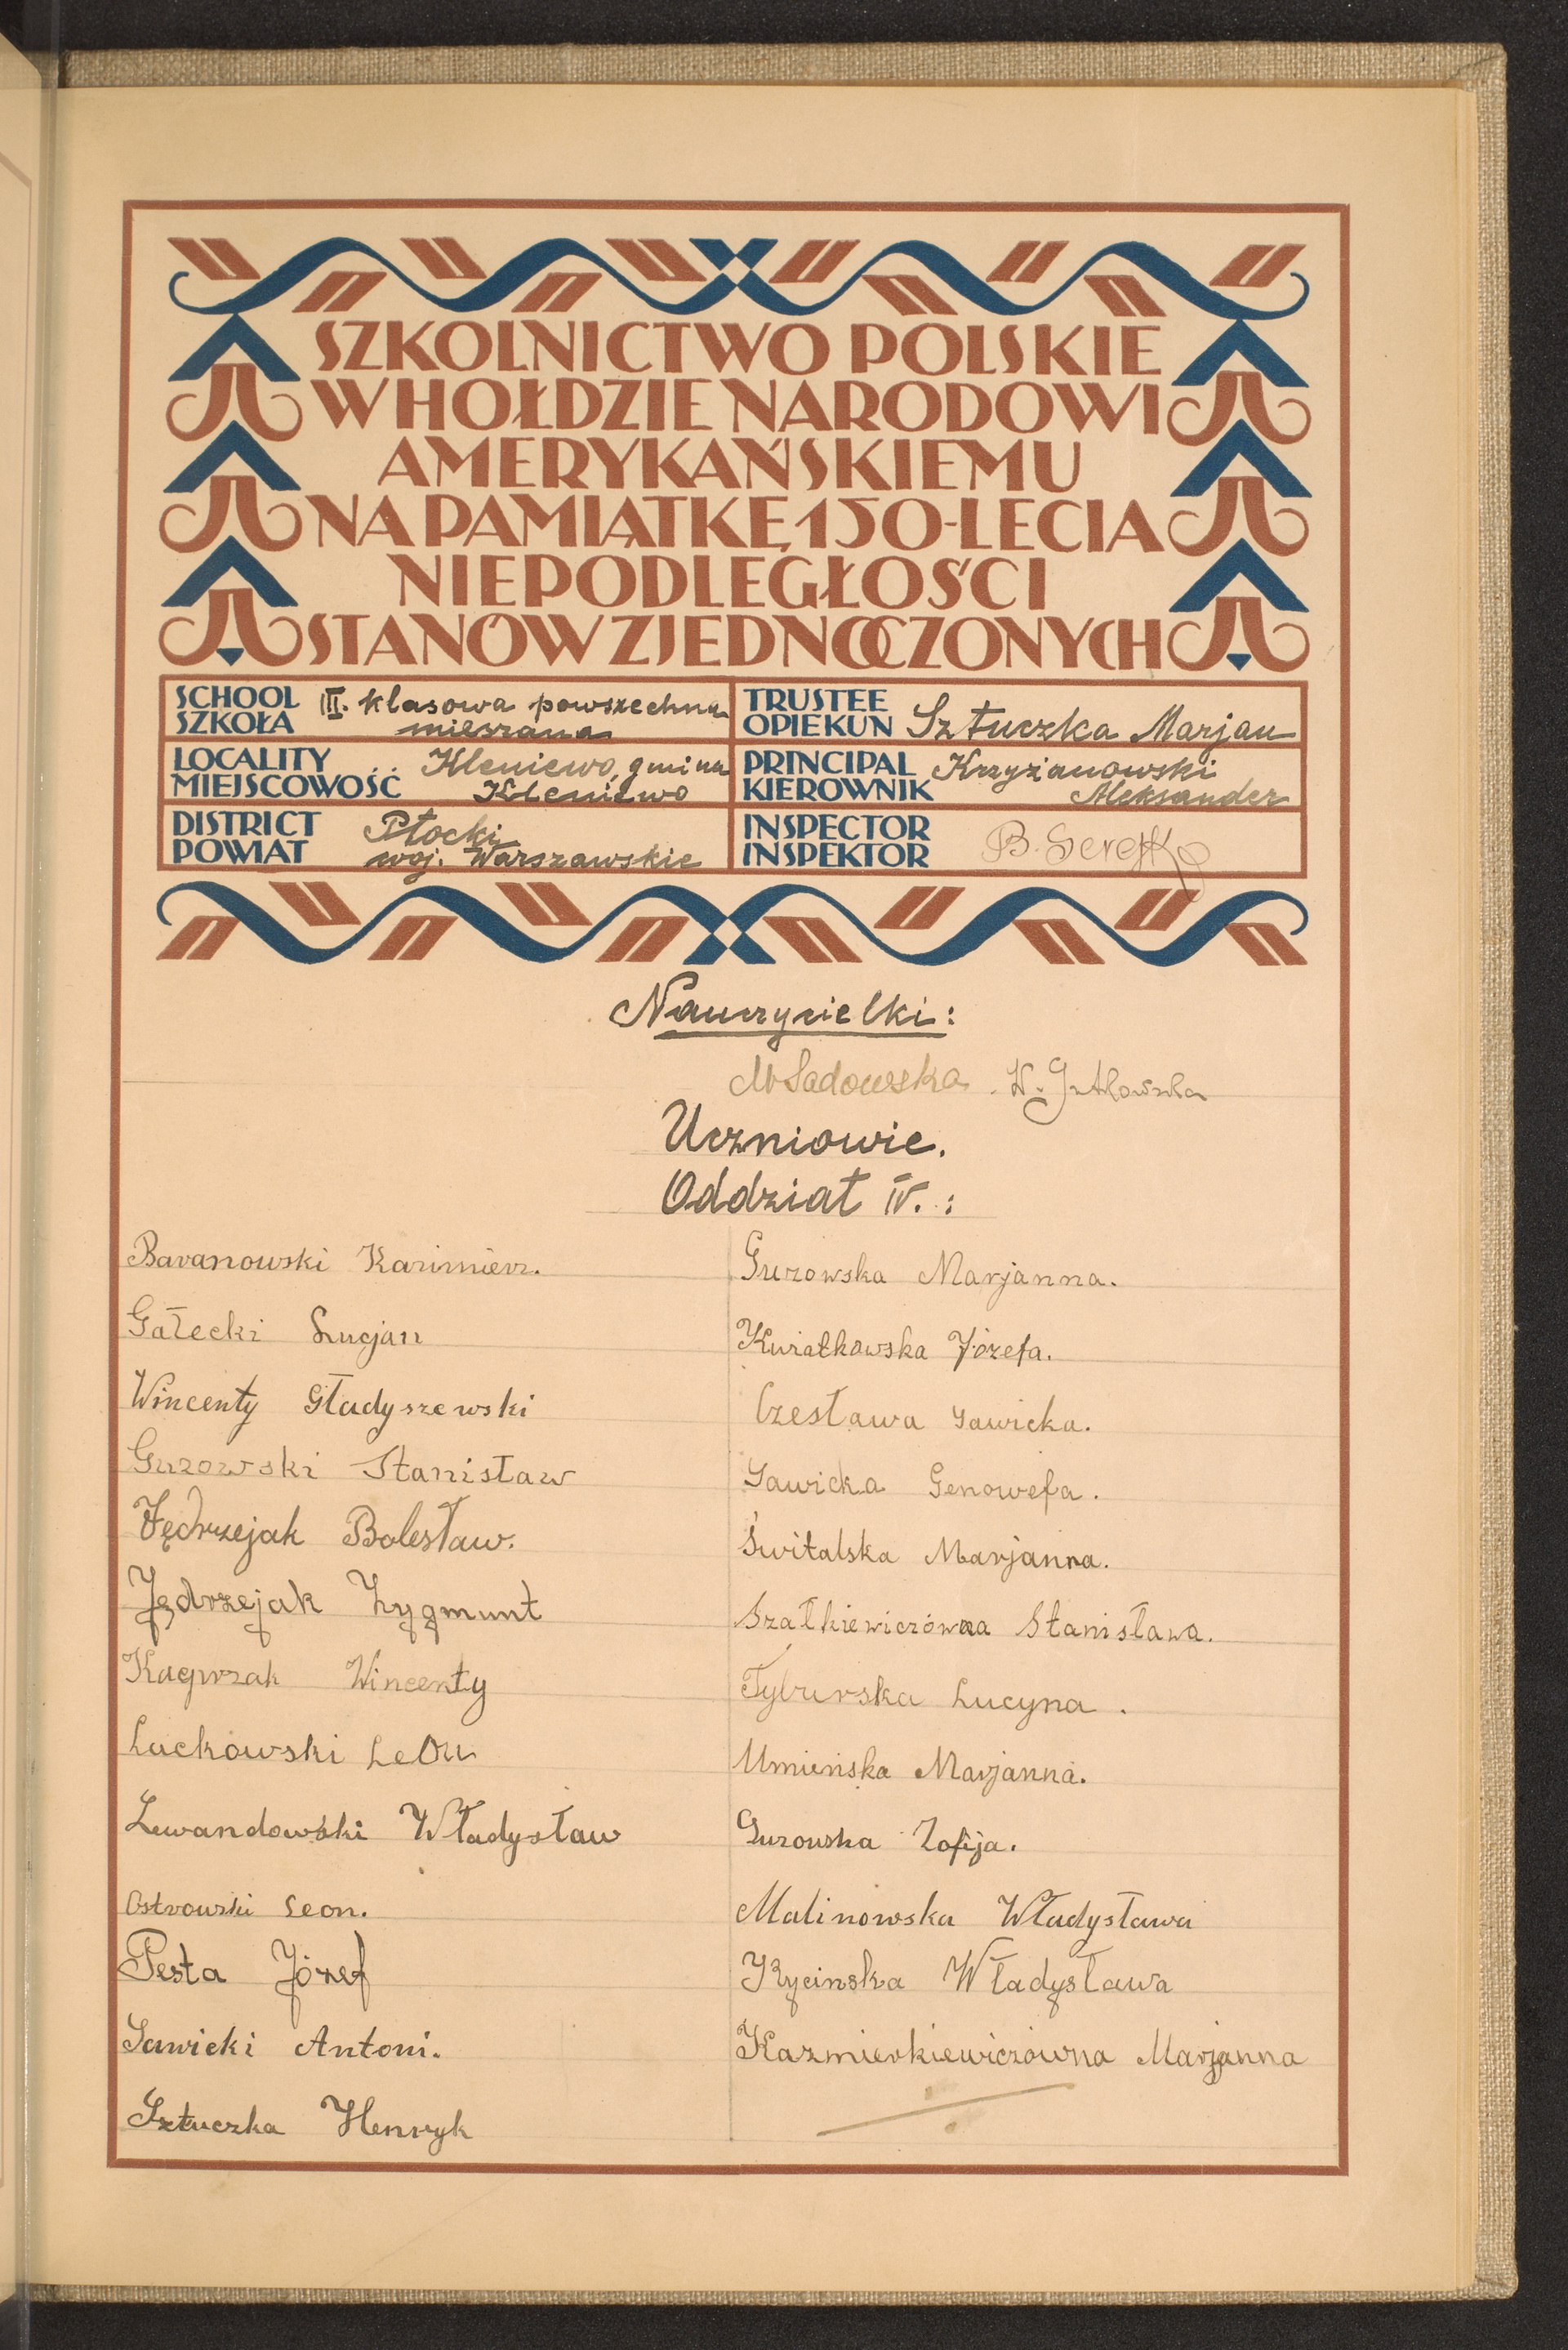 SZKOLNICTWO POLSKIE
W HOŁDZIE NARODOWI
AMERYKAŃSKIEMU
NA PAMIĄTKĘ 150-LECIA
NIEPODLEGŁOŚCI
STANÓW ZJEDNOCZONYCH
SCHOOL
SZKOŁA
III. klasowa powszechna
mieszana
TRUSTEE
OPIEKUN
Sztuczka Marjan
LOCALITY
MIEJSCOWOŚĆ
Kleniewo, gmina
Kleniewo
PRINCIPAL
KIEROWNIK
Krzyżanowski
Aleksander
DISTRICT
POWIAT
Płocki
woj. Warszawskie
INSPECTOR
INSPEKTOR
B.
Nauczycielki:
M Sadowska W.
Uczniowie.
Oddział IV. :
Baranowski Kazimierz.
Gałecki Lucjan
Wincenty Gładyszewski
Guzowski Stanisław
Jędrzejak Bolesław.
Jędrzejak Zygmunt
Kacprzak Wincenty
Lackowski Leon
Lewandowski Władysław
Ostrowski Leon.
Pesta Józef
Sawicki Antoni.
Sztuczka Henryk
Guzowska Marjanna.
Kwiatkowska Józefa.
Czesława Sawicka.
Sawicka Genowefa.
Świtalska Marjanna.
Szałkiewiczówna Stanisława.
Tyburska Lucyna.
Umieńska Marjanna.
Guzowska Zofija.
Malinowska Władysława
Kycinska Władysława
Kazmierkiewiczówna Marjanna